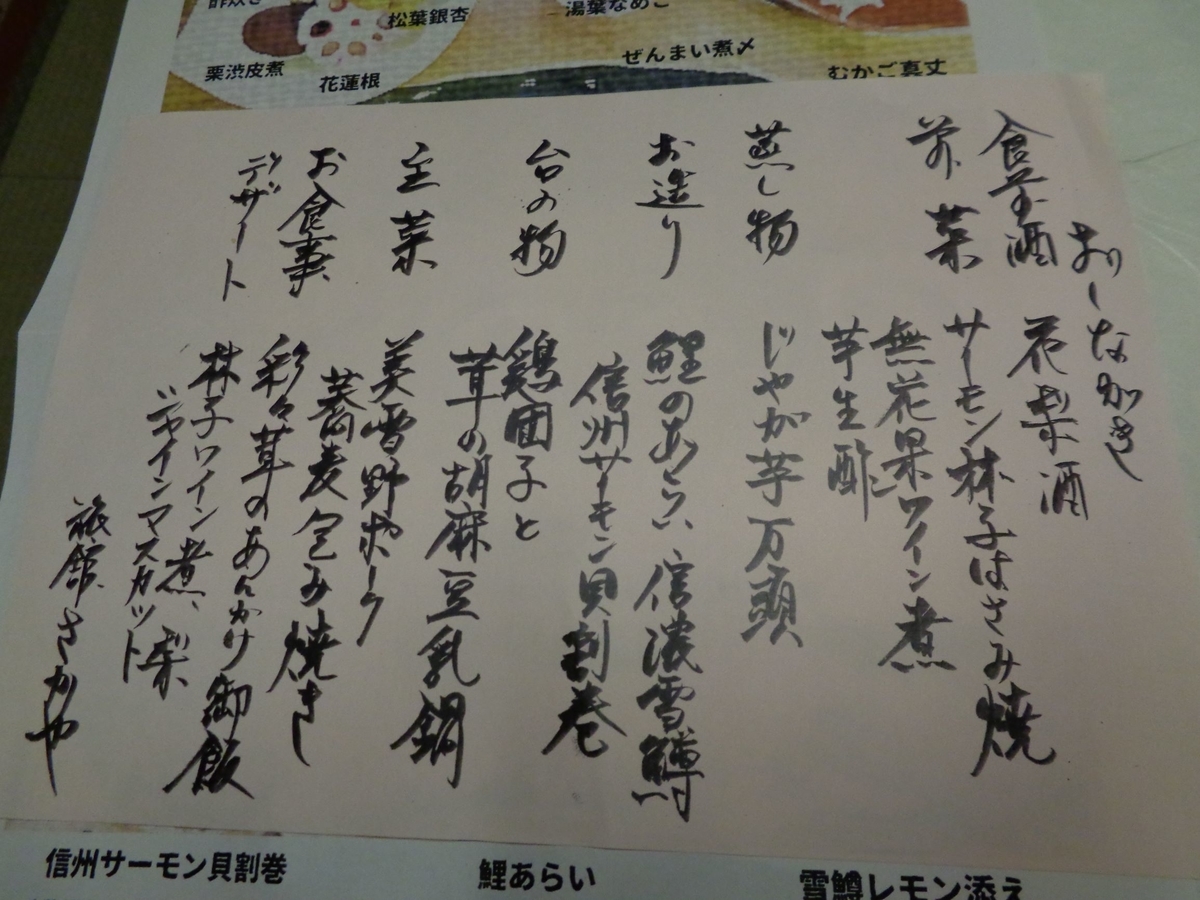 松葉銀杏
湯葉なめこ
栗渋皮煮
花蓮根
ぜんまい煮〆
むかご真丈
おしながき
食前酒 花梨酒
前菜 サーモン林子はさみ焼
無花果ワイン煮
芋生酢
蒸し物 じゃが芋万頭
お造り 鯉のあらい 信濃雪鱒
信州サーモン貝割巻
台の物 鶏団子と
茸の胡麻豆乳鍋
主菜 美雪野ポーク
蕎麦包み焼き
お食事 彩々茸のあんかけ御飯
デザート 林子ワイン煮、梨
シャインマスカット
旅館さかや
信州サーモン貝割巻
鯉あらい
雪鱒レモン添え